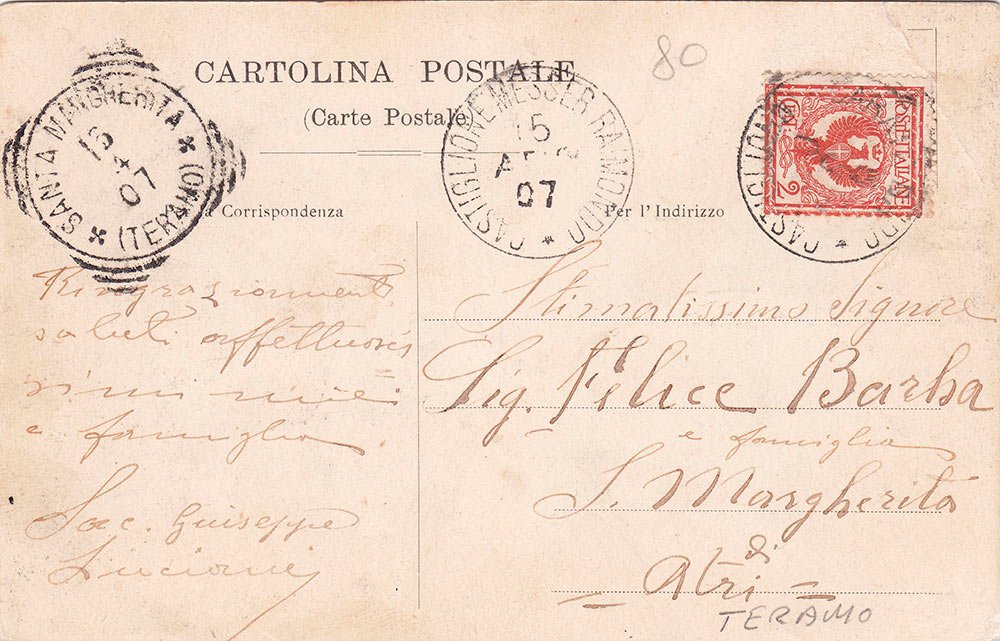 80
CARTOLINA POSTALE
(Carte Postale)
SANTA MARGHERITA
(TERAMO)
15
4
07
CASTIGLIONE MESSER RAIMONDO
15
07
POSTE ITALIANE
2
CASTIGLIONE
Corrispondenza
Per l'Indirizzo
Ringraziamenti
saluti affettuosis
simi miei
e famiglia
Sac. Guiseppe
Luciani
Stimatissimo Signore
Sig. Felice Barba
e famiglia
S. Margherita
di
Atri
TERAMO